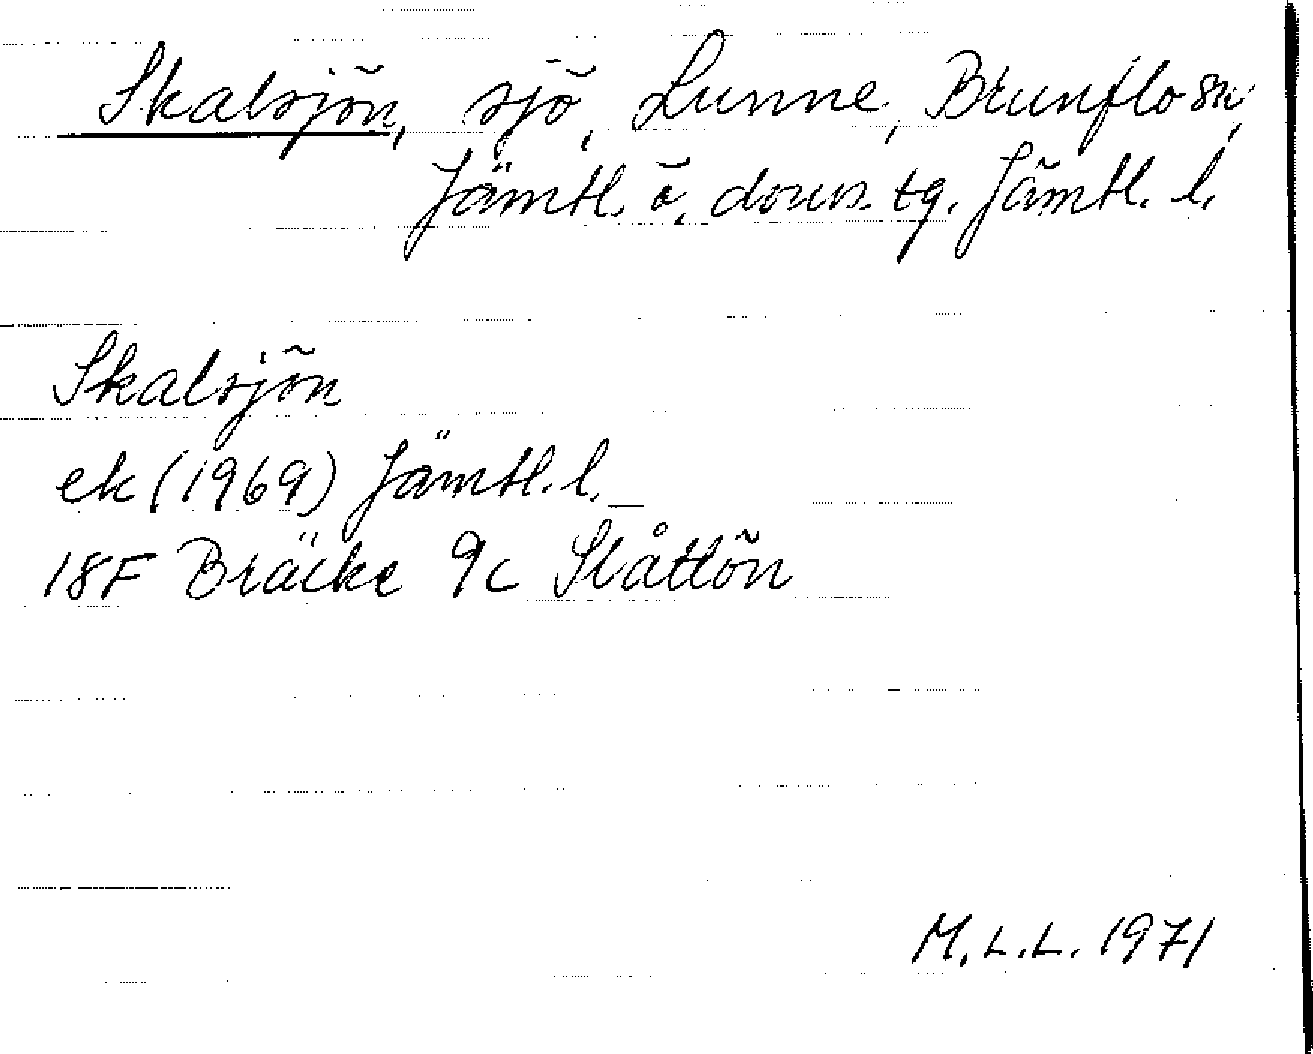 Skalsjön, sjö, Lunne, Brunflo sn,
Jämtl. ö. doms. tg. Jämtl. l.
Skalsjön
ek (1969) Jämtl. l.
18F Bräcke 9c Slåttön
M.L.L. 1971